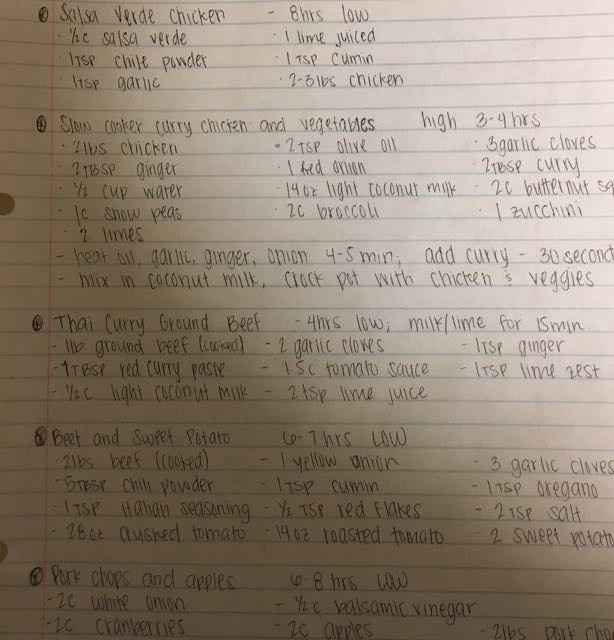 Salsa verde chicken - 8hrs low
· ½c salsa verde · 1 lime juiced
· 1TSP chile powder · 1TSP cumin
· 1TSP garlic · 2-3lbs chicken
Slow cooker curry chicken and vegetables high 3-4hrs
· 2lbs chicken · 2TSP olive oil · 3garlic cloves
· 2TBSP ginger · 1 Red onion · 2TBSP curry
· ½ cup water · 14oz light coconut milk · 2c butternut sq
· 1c snow peas · 2c broccoli · 1 zucchini
· 2 limes
- heat oil, garlic, ginger, onion 4-5 min, add curry - 30second
- mix in coconut milk, crock pot with chicken & veggies
Thai Curry Ground Beef - 4hrs low, milk/lime for 15min
- 1lb ground beef (cooked) - 2 garlic cloves - 1TSP ginger
- 1TBSP red curry paste - 1.5c tomato sauce - 1TSP lime zest
- ½c light coconut milk - 2tsp lime juice
Beef and Sweet Potato 6-7hrs LOW
· 2lbs beef (cooked) - 1 yellow onion - 3 garlic cloves
· 5TBSP chili powder - 1TSP cumin - 1TSP oregano
· 1TSP italian seasoning - ½ TSP red flakes - 2TSP salt
- 28oz crushed tomato - 14oz roasted tomato - 2 sweet potato
Pork chops and apples 6-8hrs LOW
- 2c white onion - ½c balsamic vinegar
- 2c cranberries - 2c apples - 2lbs pork cho